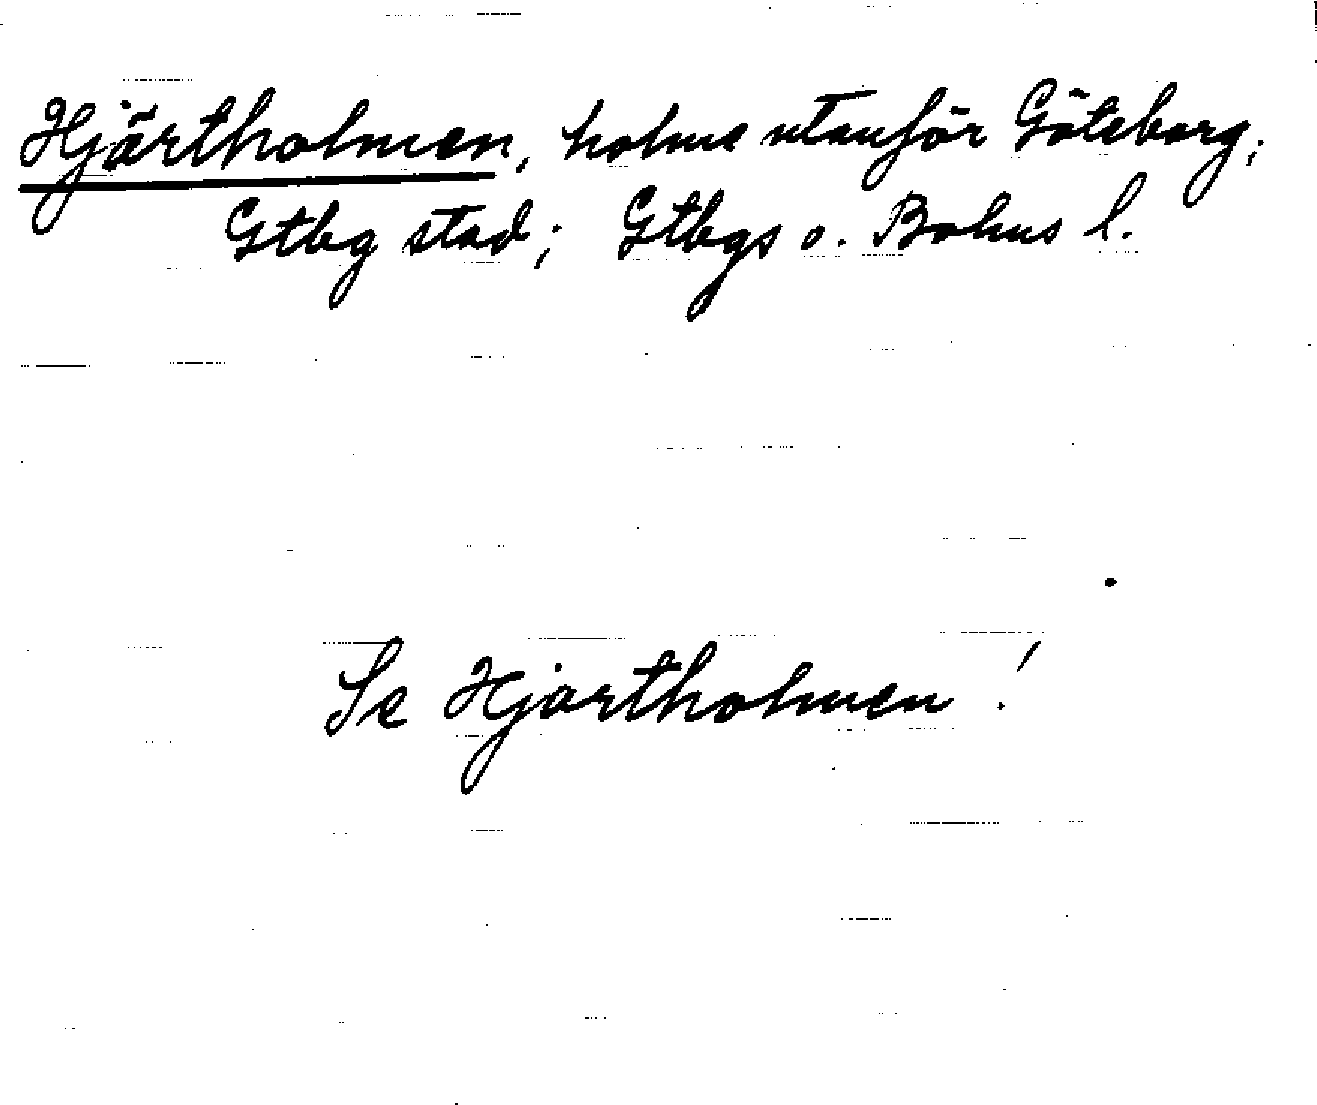 Hjärtholmen, holme utanför Göteborg;
Gtbg stad; Gtbgs o. Bohus l.
Se Hjartholmen!